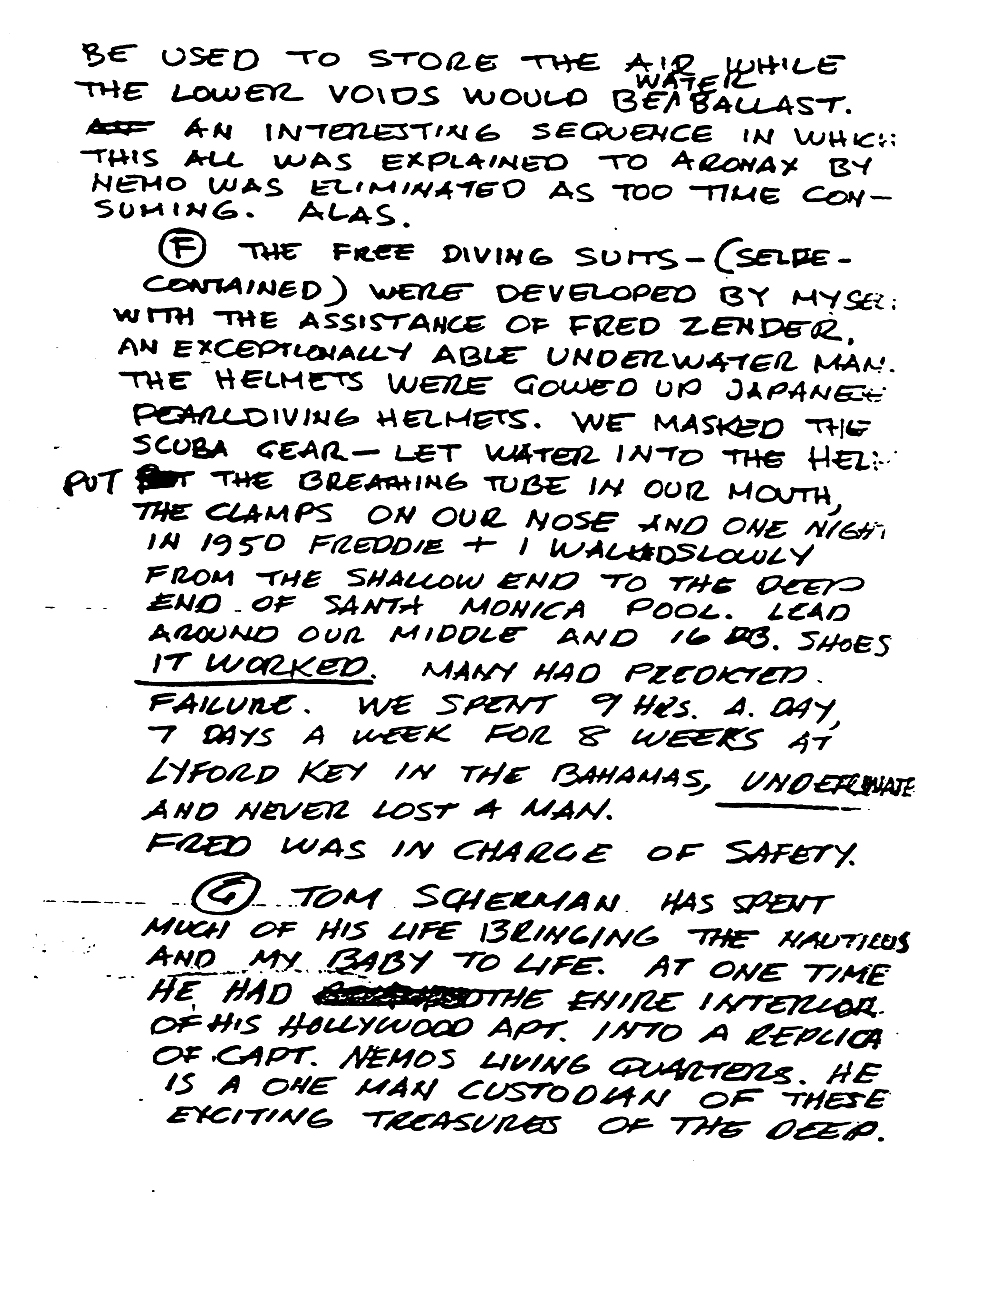 BE USED TO STORE THE AIR WHILE
THE LOWER VOIDS WOULD BE WATER BALLAST.
AN INTERESTING SEQUENCE IN WHICH
THIS ALL WAS EXPLAINED TO ARONAX BY
NEMO WAS ELIMINATED AS TOO TIME CON-
SUMING. ALAS.
(F) THE FREE DIVING SUITS-(SELFE-
CONTAINED) WERE DEVELOPED BY MYSEL
WITH THE ASSISTANCE OF FRED ZENDER,
AN EXCEPTIONALLY ABLE UNDERWATER MAN.
THE HELMETS WERE GOWED UP JAPANESE
PEARLDIVING HELMETS. WE MASKED THE
SCUBA GEAR- LET WATER INTO THE HEL
PUT THE BREATHING TUBE IN OUR MOUTH,
THE CLAMPS ON OUR NOSE AND ONE NIGHT
IN 1950 FREDDIE + I WALKEDSLOWLY
FROM THE SHALLOW END TO THE DEEP
END OF SANTA MONICA POOL. LEAD
AROUND OUR MIDDLE AND 16 LB. SHOES
IT WORKED. MANY HAD PREDICTED
FAILURE. WE SPENT 9 HRS. A. DAY,
7 DAYS A WEEK FOR 8 WEEKS AT
LYFORD KEY IN THE BAHAMAS, UNDERWATE
AND NEVER LOST A MAN.
FRED WAS IN CHARGE OF SAFETY.
(G) TOM SCHERMAN HAS SPENT
MUCH OF HIS LIFE BRINGING THE NAUTILUS
AND MY BABY TO LIFE. AT ONE TIME
HE HAD THE ENIRE INTERIOR
OF HIS HOLLYWOOD APT. INTO A REPLICA
OF CAPT. NEMOS LIVING QUARTERS. HE
IS A ONE MAN CUSTODIAN OF THESE
EXCITING TREASURES OF THE DEEP.